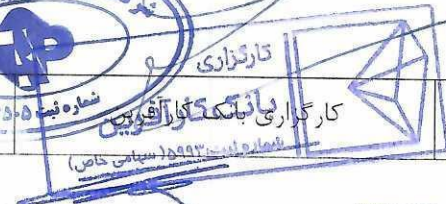 کارگزاری
بانک کارآفرین
کارگزاری بانک کارآفرین
شماره ثبت ۵۹۹۳ (سهامی خاص)
شماره ثبت